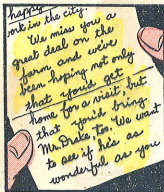 happy
work in the city.
We miss you a
great deal on the
farm and we've
been hoping not only
that you'd get
home for a visit, but
that you'd bring
Mr. Drake, too. We want
to see if he's as
wonderful as you